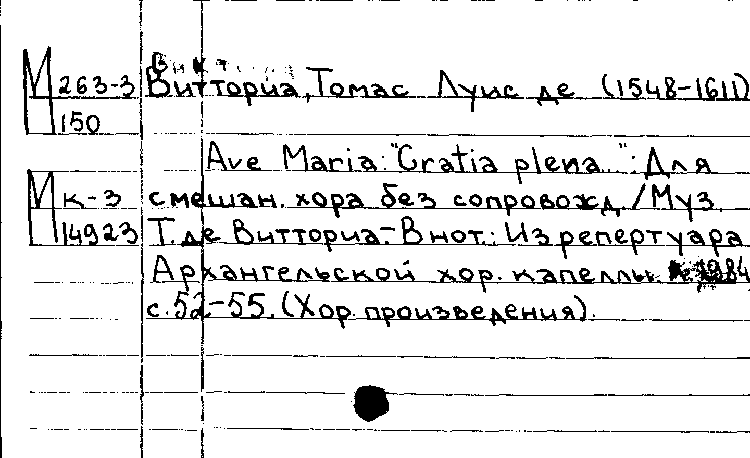 М 263-3 Витториа, Томас Луис де (1548-1611)
150
Ave Maria: "Gratia plena...": Для
М к-3 смешан. хора без сопровожд. / Муз.
14923 Т. де Витториа.- В нот.: Из репертуара
Архангельской хор. капеллы. 1984
с. 52-55. (Хор. произведения).